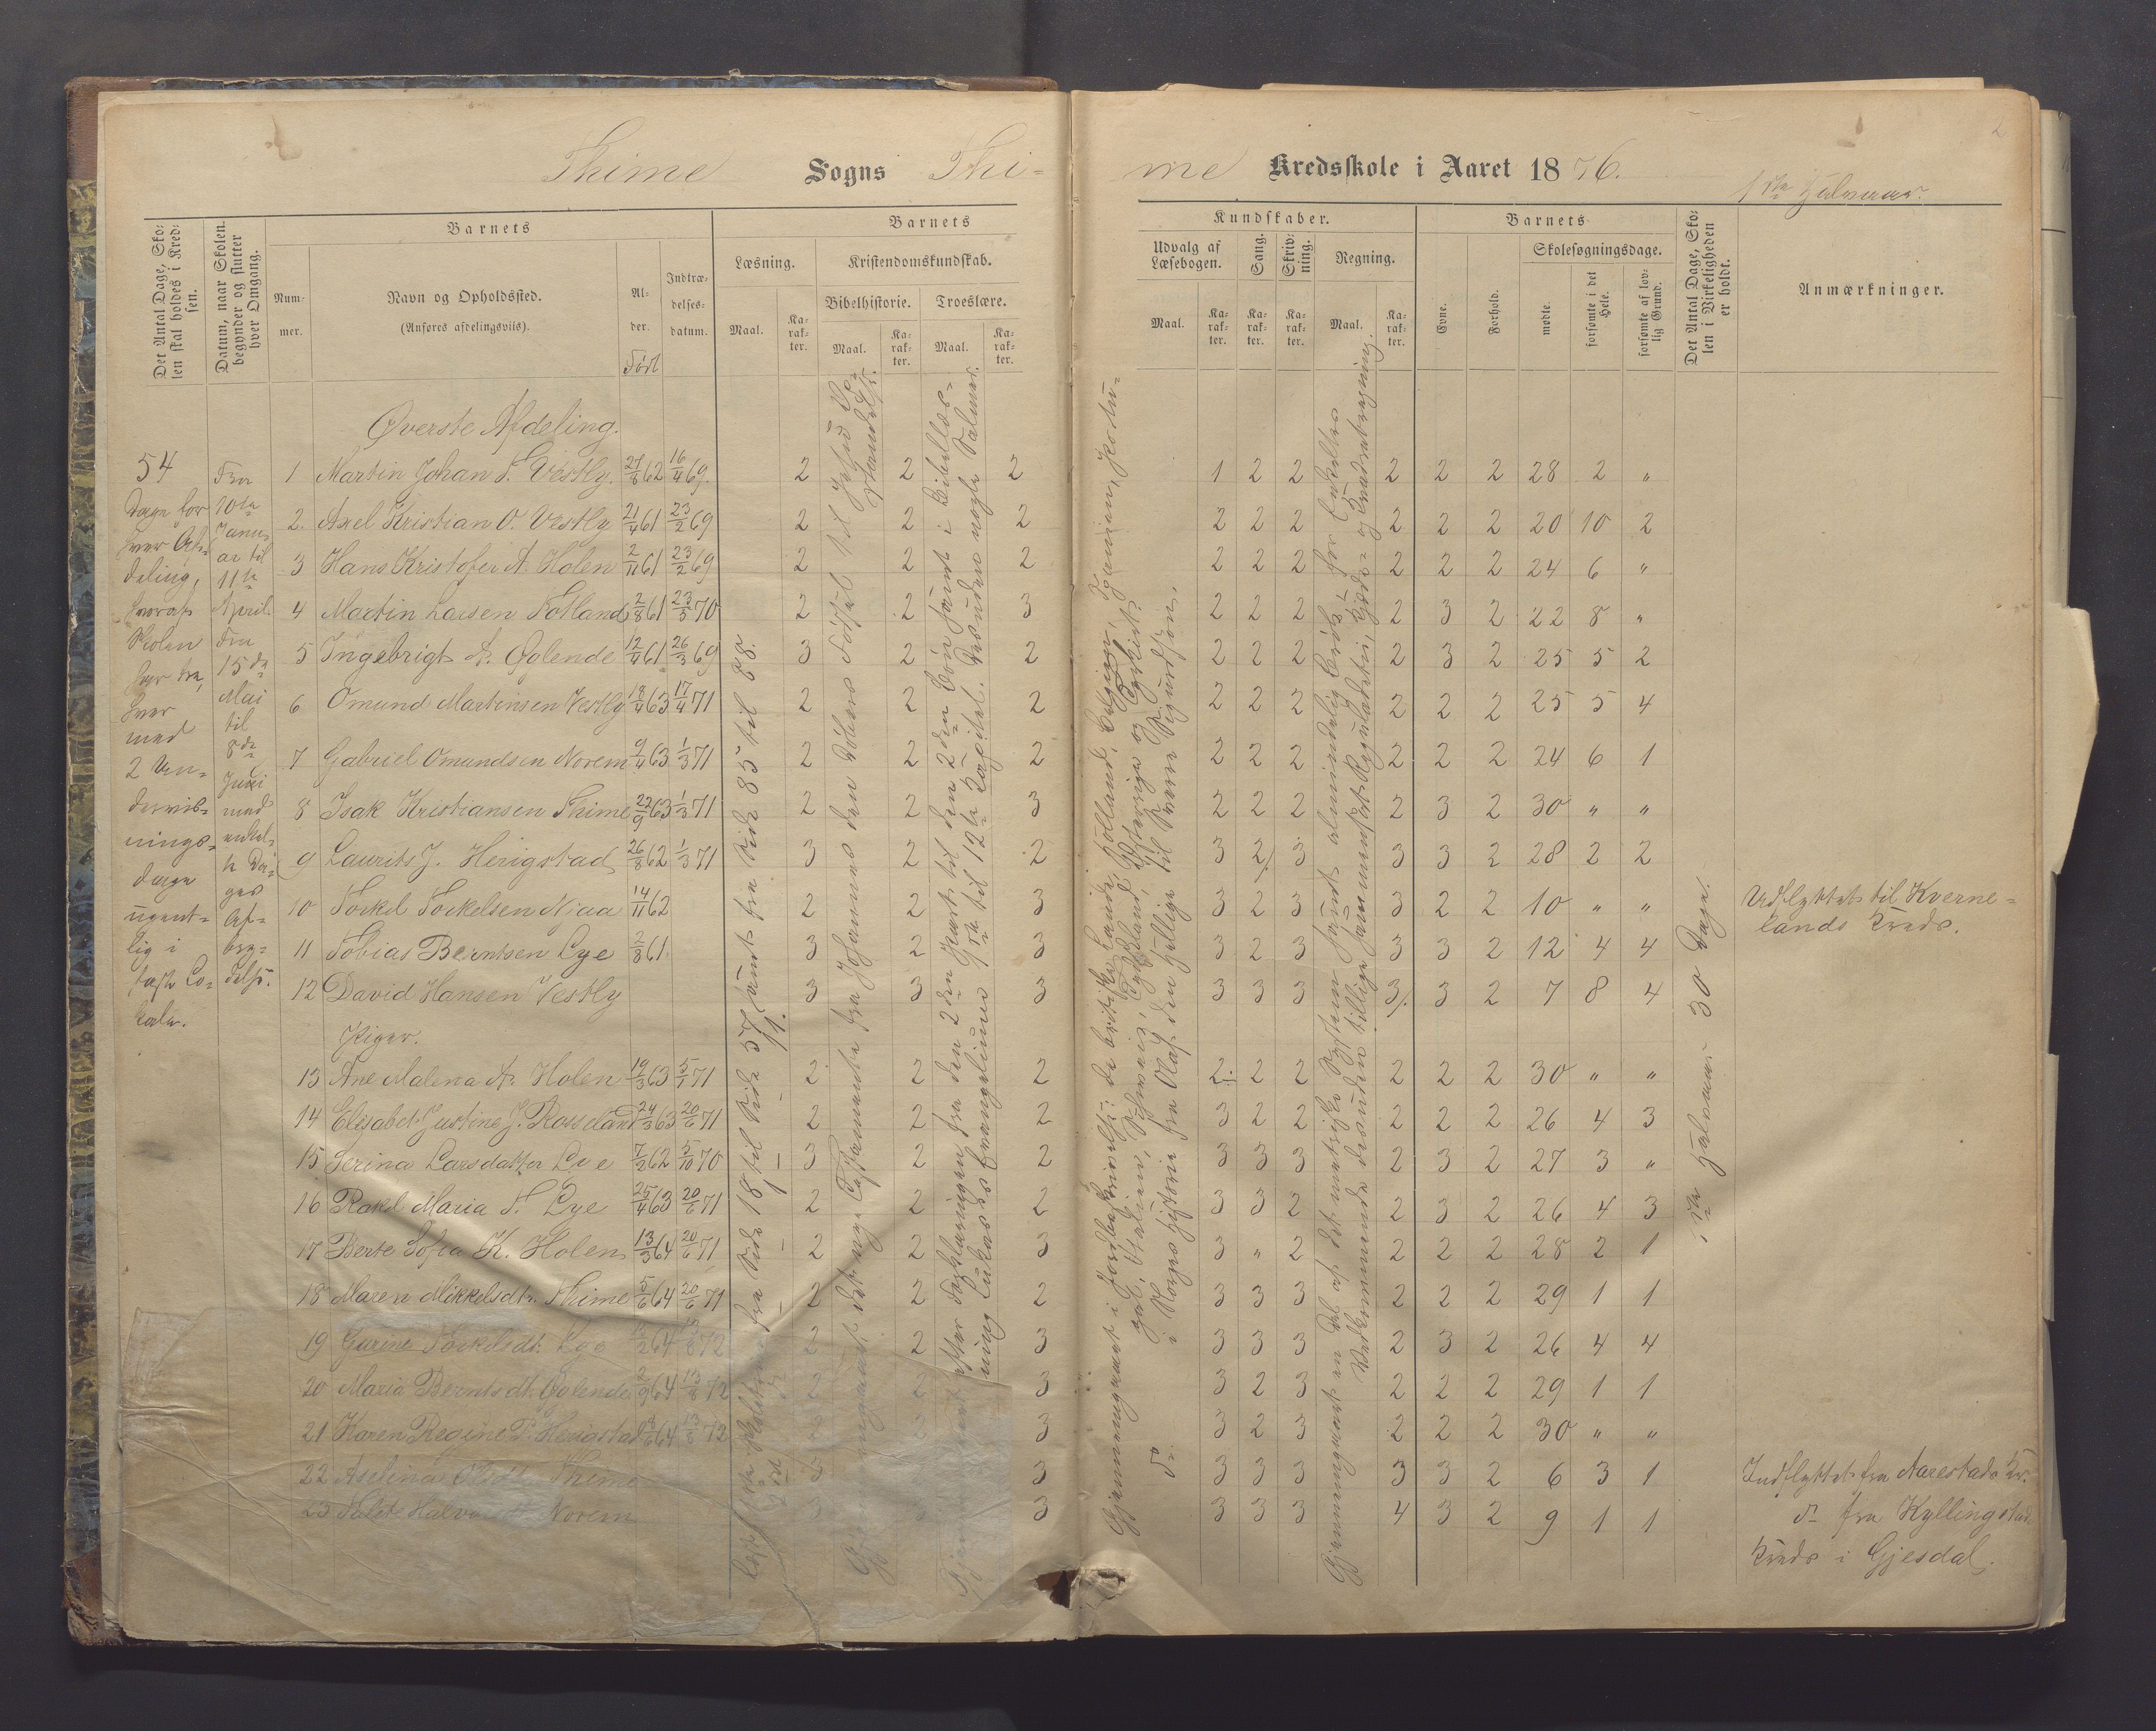 Thime Sogns Thi-
me Kredsskole i Aaret 1876.
1ste Halvaar.
2
Det Antal Dage, Skolen skal holdes i Kredsen.
Datum, naar Skolen begynder og slutter hver Omgang.
Barnets
Nummer.
Navn og Opholdssted.
(Anføres afdelingsviis).
Alder.
Født
Indtrædelsesdatum.
Barnets
Læsning.
Maal.
Karakter.
Kristendomskundskab.
Bibelhistorie.
Maal.
Karakter.
Troeslære.
Maal.
Karakter.
Kundskaber.
Udvalg af Læsebogen.
Maal.
Karakter.
Sang.
Karakter.
Skrivning.
Karakter.
Regning.
Maal.
Karakter.
Barnets
Evne.
Forhold.
Skolesøgningsdage.
mødte.
forsømte i det Hele.
forsømte af lovlig Grund.
Det Antal Dage, Skolen i Virkeligheden er holdt.
Anmærkninger.
54
Dage for
hver Af-
deling,
hvoraf
Skolen
har tre,
hver
med
2 Un-
dervis-
nings-
dage
ugent-
lig i
fast Lo-
kale.
Fra
10de
Janu-
ar til
11te
April.
Fra
15de
Mai
til
8de
Juni
med
enkel-
te Da-
ges
Af-
bry-
delse.
Øverste Afdeling.
1 Martin Johan T. Vestly. 27/8 62 16/4 69. 2 2 2 1 2 2 2 2 2 28 2 "
2. Axel Kristian O. Vestly 21/4 61 23/2 69 2 2 2 2 2 2 2 2 2 20 10 2
3 Hans Kristofer A. Holen 2/11 61 23/2 69 2 2 2 2 2 2 2 2 2 24 6 "
4 Martin Larsen Fotland 2/8 61 23/3 70 2 2 3 2 2 2 2 3 2 22 8 "
5 Ingebrigt A. Øglende 12/4 61 26/3 69 3 2 2 2 2 2 2 3 2 25 5 2
6 Omund Martinsen Vestly 18/4 63 17/4 71 2 2 2 2 2 2 2 2 2 25 5 4
7 Gabriel Omundsen Norem 9/4 63 1/3 71 2 2 2 2 2 2 2 2 2 24 6 1
8 Isak Kristiansen Thime 22/9 63 1/3 71 2 2 3 2 2 2 2 3 2 30 " "
9 Laurits J. Herigstad 26/8 62 1/3 71 3 2 2 3 2/. 3 3 3 2 28 2 2
10 Torkel Torkelsen Njaa 14/11 62 2 2 3 3 2 3 3 2 2 10 " " Udflyttet til Kverne-
lands Kreds.
11 Tobias Berntsen Lye 2/8 61. 3 2 3 3 2 3 3 3 2 12 4 4
12 David Hansen Vestly 3 3 3 3 3 3 3/. 3 2 7 8 4
Piger.
13 Ane Malena A. Holen 19/3 63 5/1 71 2 2 2 2. 2 2 2 2 2 30 " "
14 Elisabet Justine J. Rosseland 24/3 63 20/6 71 2 2 2 3 2 2 2 2 2 26 4 3
15 Serina Larsdatter Lye 7/2 62 5/10 70 3 2 2 3 3 3 2 3 2 27 3 "
16 Rakel Maria T. Lye 25/4 63 20/6 71 2 2 2 3 3 2 2 3 2 26 4 3
17 Berte Sofia K. Holen 13/3 64 20/6 71 2 2 3 3 " 2 2 2 2 28 2 1
18 Maren Mikkelsdtr. Thime 5/6 64 20/6 71 2 2 2 3 3 3 2 2 2 29 1 1
19 Gurine Torkelsdt. Lye 2 2 3 3 3 3 2 3 2 26 4 4
20 Maria Berntsdt. Øglende 2 2 3 3 2 3 2 2 2 29 1 1
21 Karen Regine P. Herigstad 2 3 3 2 3 2 2 2 30 " "
22 Aselina Olsdt. Thime 3 3 3 3 3 3 3 2 6 3 1 Indflyttet fra Aarestads Kr.
23 Norem 3 3 3 3 3 3 4 3 2 9 1 1 do fra Kyllingstad
Kreds i Gjesdal.
fra Side 18 til Side 57 samt fra Side 85 til 88.
Gjennemgaaet det nye Testamente fra Johannes den Døbers Fødsel til Jesu Op-
standelse.
efter Forklaringen fra den 2den Part til den 2den Bøn samt i Bibellæs-
ning Lukas's Evangelium 9de til 12te Kapitel. Desuden nogle Salmer.
Gjennemgaaet i Jordbeskrivelse: de britiske Lande, Holland, Belgien, Spanien, Portu-
gal, Italien, Schweiz, Tydskland, Østerrige og Tyrkiet.
do i Norges Historie fra Olaf den Hellige til Sverre Sigurdsøn.
Gjennemgaaet en Del af det metriske System samt almindelig Brøk, for Enkeltes
Vedkommende desuden tillige sammensat Reguladetri, Kjæde- og Kvadratregning.
1ste Halvaar 30 Dage.